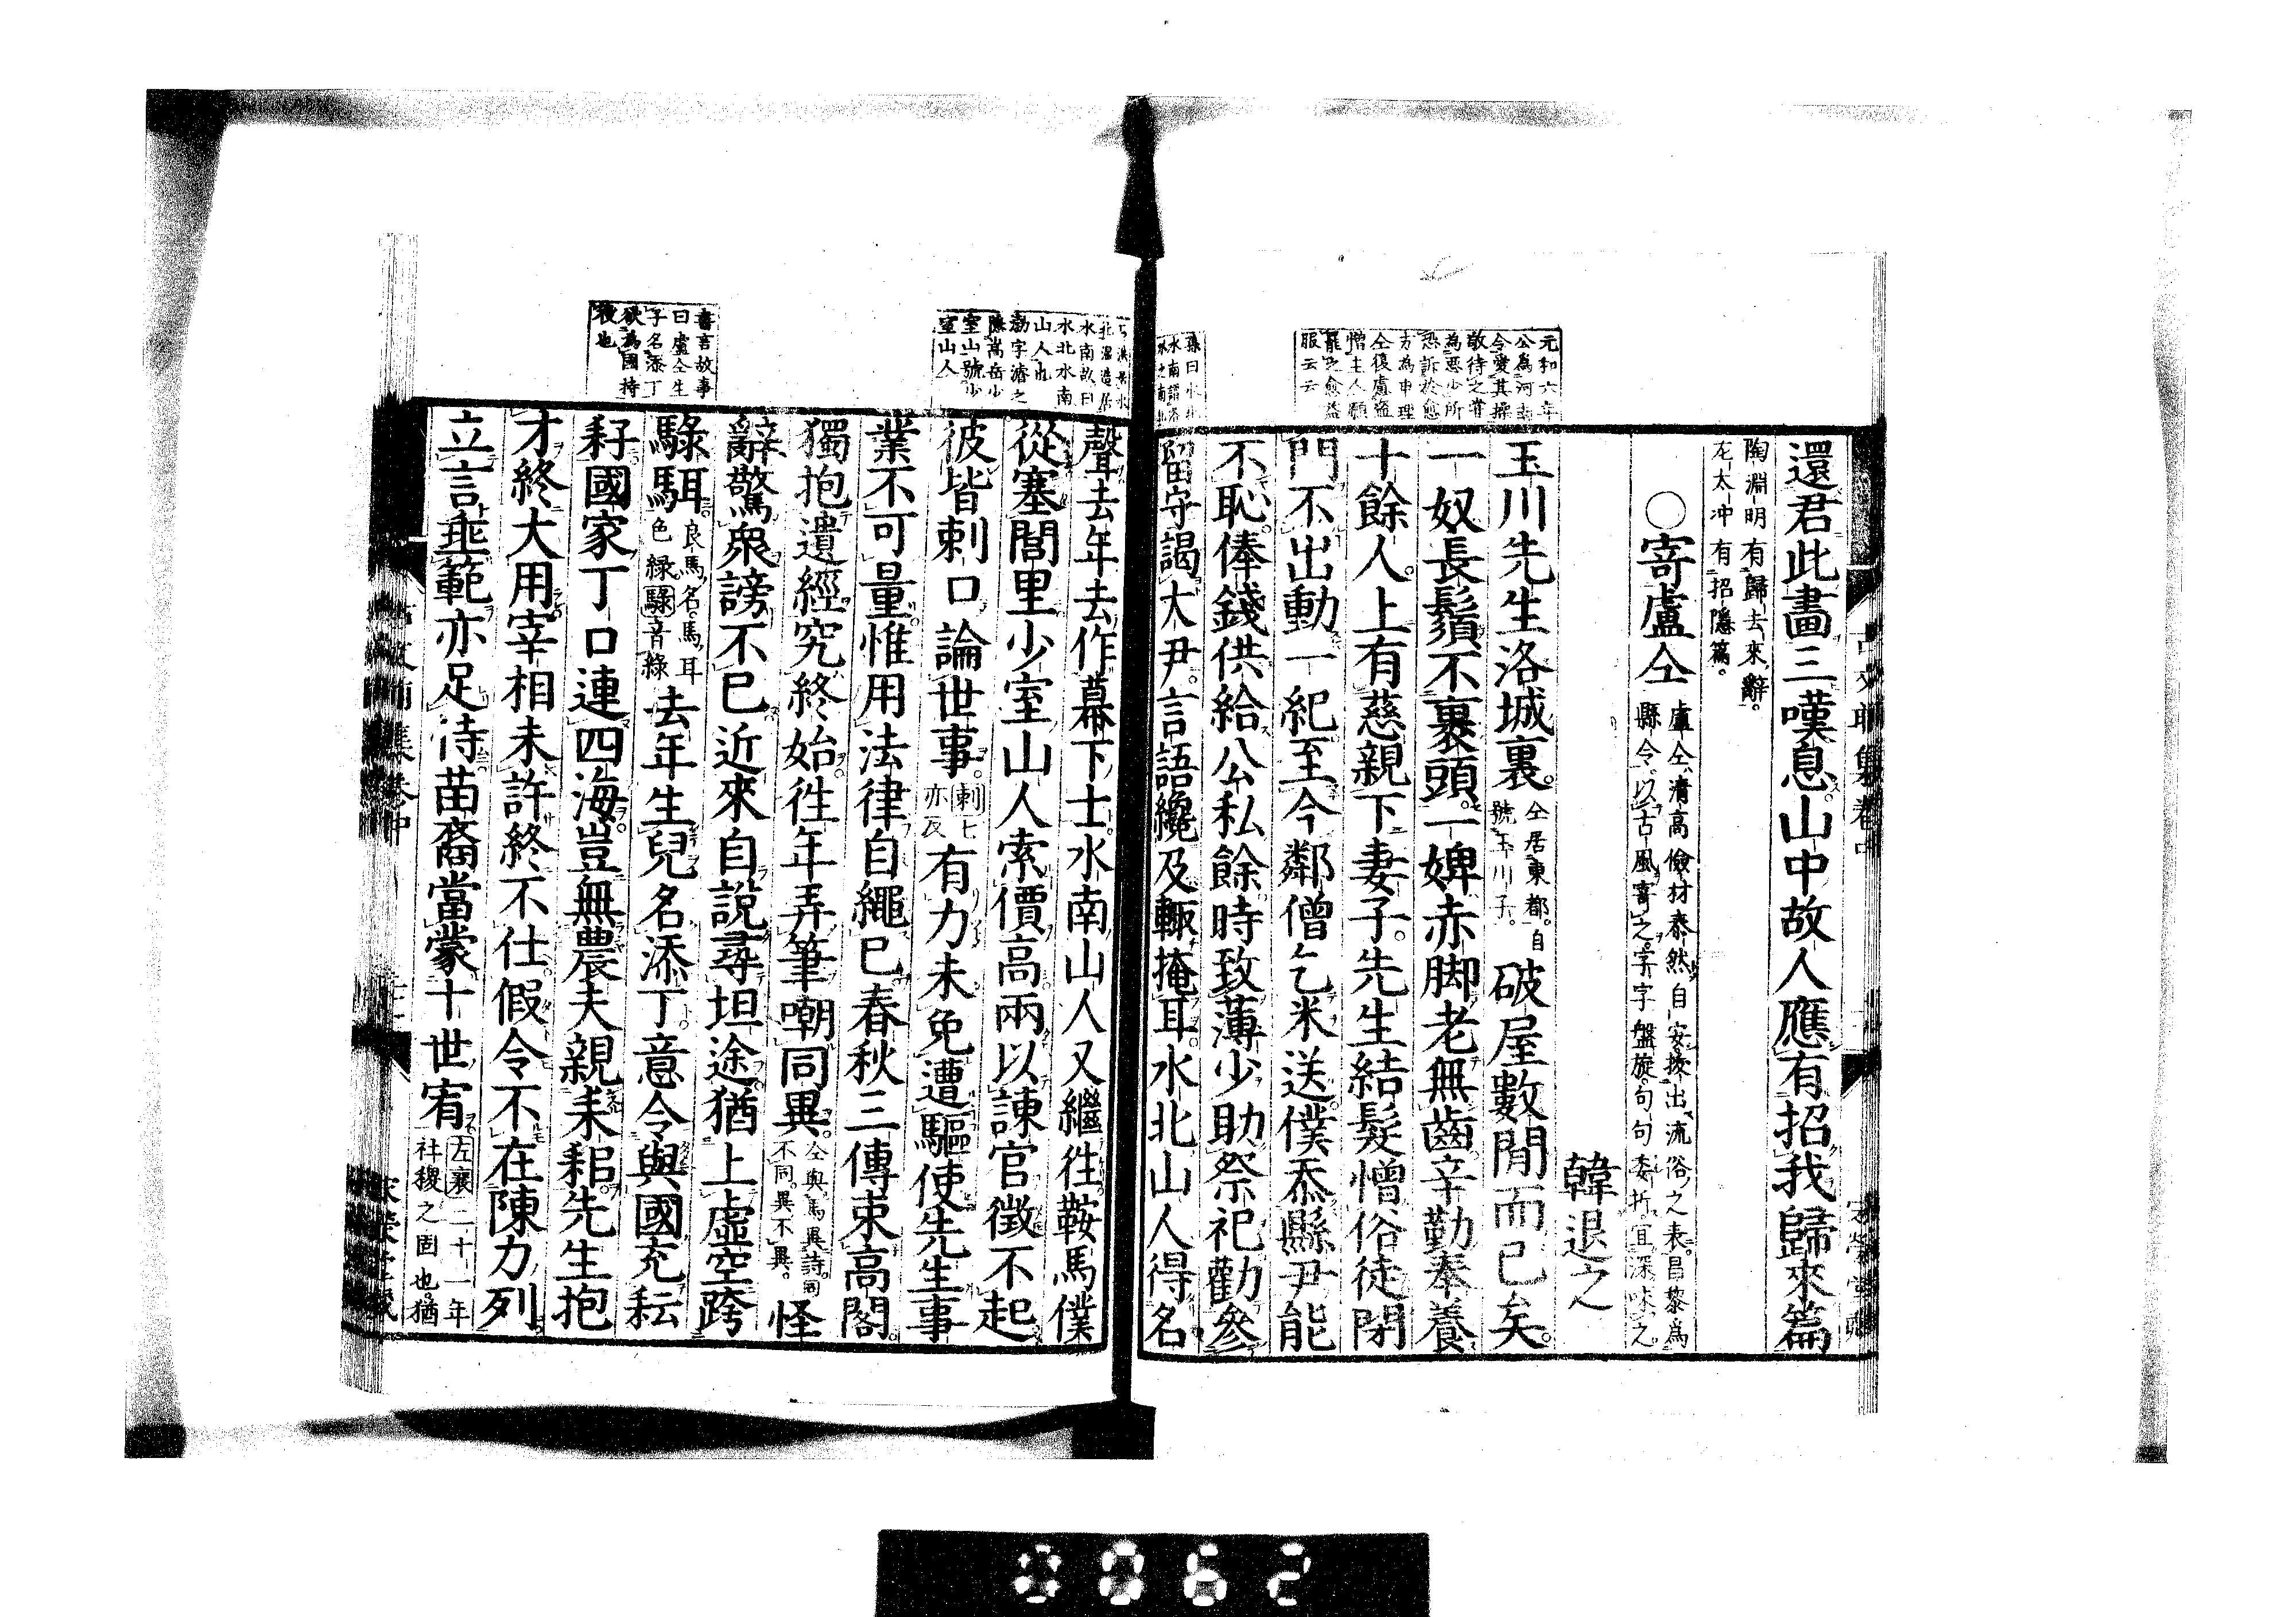 還君此畵三嘆息山中故人應有招我歸來篇
陶淵明有歸去來辭。
左太冲有招隱篇。
〇寄盧仝
盧仝清高儉材泰然自安拔出流俗之表昌黎爲
縣令以古風寄之字字盤旋句句委折宜深味之
韓退之
玉川先生洛城裏仝居東都。自號玉川子。破屋數間而已矣
一奴長鬚不裹頭一婢赤脚老無齒辛勤奉養
十餘人上有慈親下妻子先生結髮憎俗徒閉
門不出動一紀至今鄰僧乞米送僕忝縣尹能
不恥俸錢供給公私餘時致薄少助祭祀勸參
留守謁大尹言語纔及輙掩耳水北山人得名
元和六年
公為河南
令愛其操
敬待之嘗
為惡少所
恐訴於愈
方為申理
仝復慮盜
憎主人願
罷之愈益
服云云
聲去年去作幕下士水南山人又繼徃鞍馬僕
從塞閭里少室山人索價高兩以諫官徵不起
彼皆刺口論世事刺七亦反有力未免遭驅使先生事
業不可量惟用法律自繩已春秋三傳束高閣
獨抱遺經究終始徃年弄筆嘲同異仝與馬異詩同不同。異不異。怪
辭驚衆謗不已近來自說尋坦途猶上虛空跨
騄駬良馬名馬耳色綠騄音綠去年生兒名添丁意令與國充耘
耔國家丁口連四海豈無農夫親耒耜先生抱
才終大用宰相未許終不仕假令不在陳力列
立言垂範亦足恃苗裔當蒙十世宥左襄二十一年社稷之固也。猶
水北水南
山人也
渤字濬之
隱嵩岳少
室山號少
室山人
書言故事
曰盧仝生
子名添丁
欲為國持
役也
0062